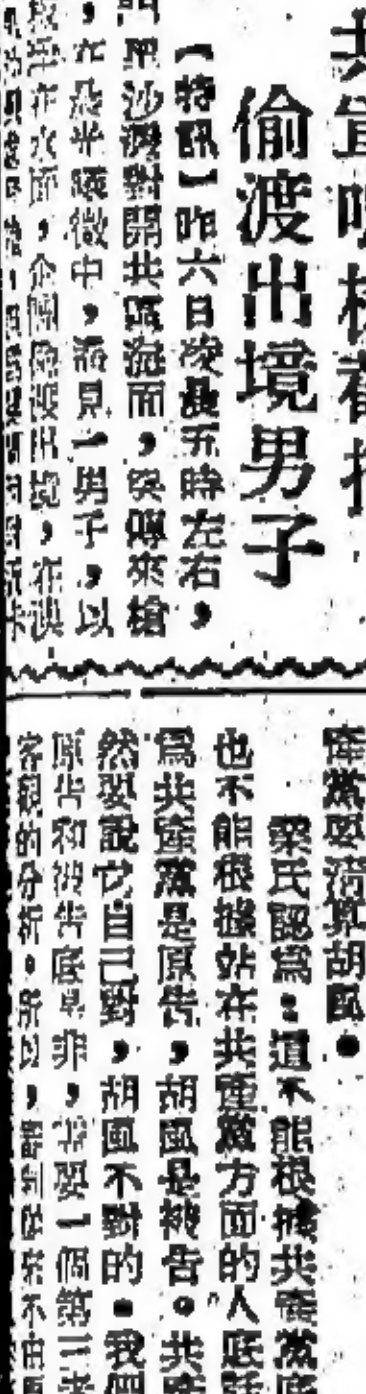 偷渡出境男子
【特訊】昨六日凌晨五時左右,
沙灣對開共區海面,突傳來槍
,在晨光曦微中,看見一男子,以
在水面,企圖偷渡出境,在
產黨要清算胡風。
梁氏認爲:這不能根據共產黨底
也不能根據站在共產黨方面的人底話
爲共產黨是原告,胡風是被告。共
然要說它自己對,胡風不對的。我們
原告和被告底是非,需要一個第三者
客觀的分析。所以,審判從來不由原